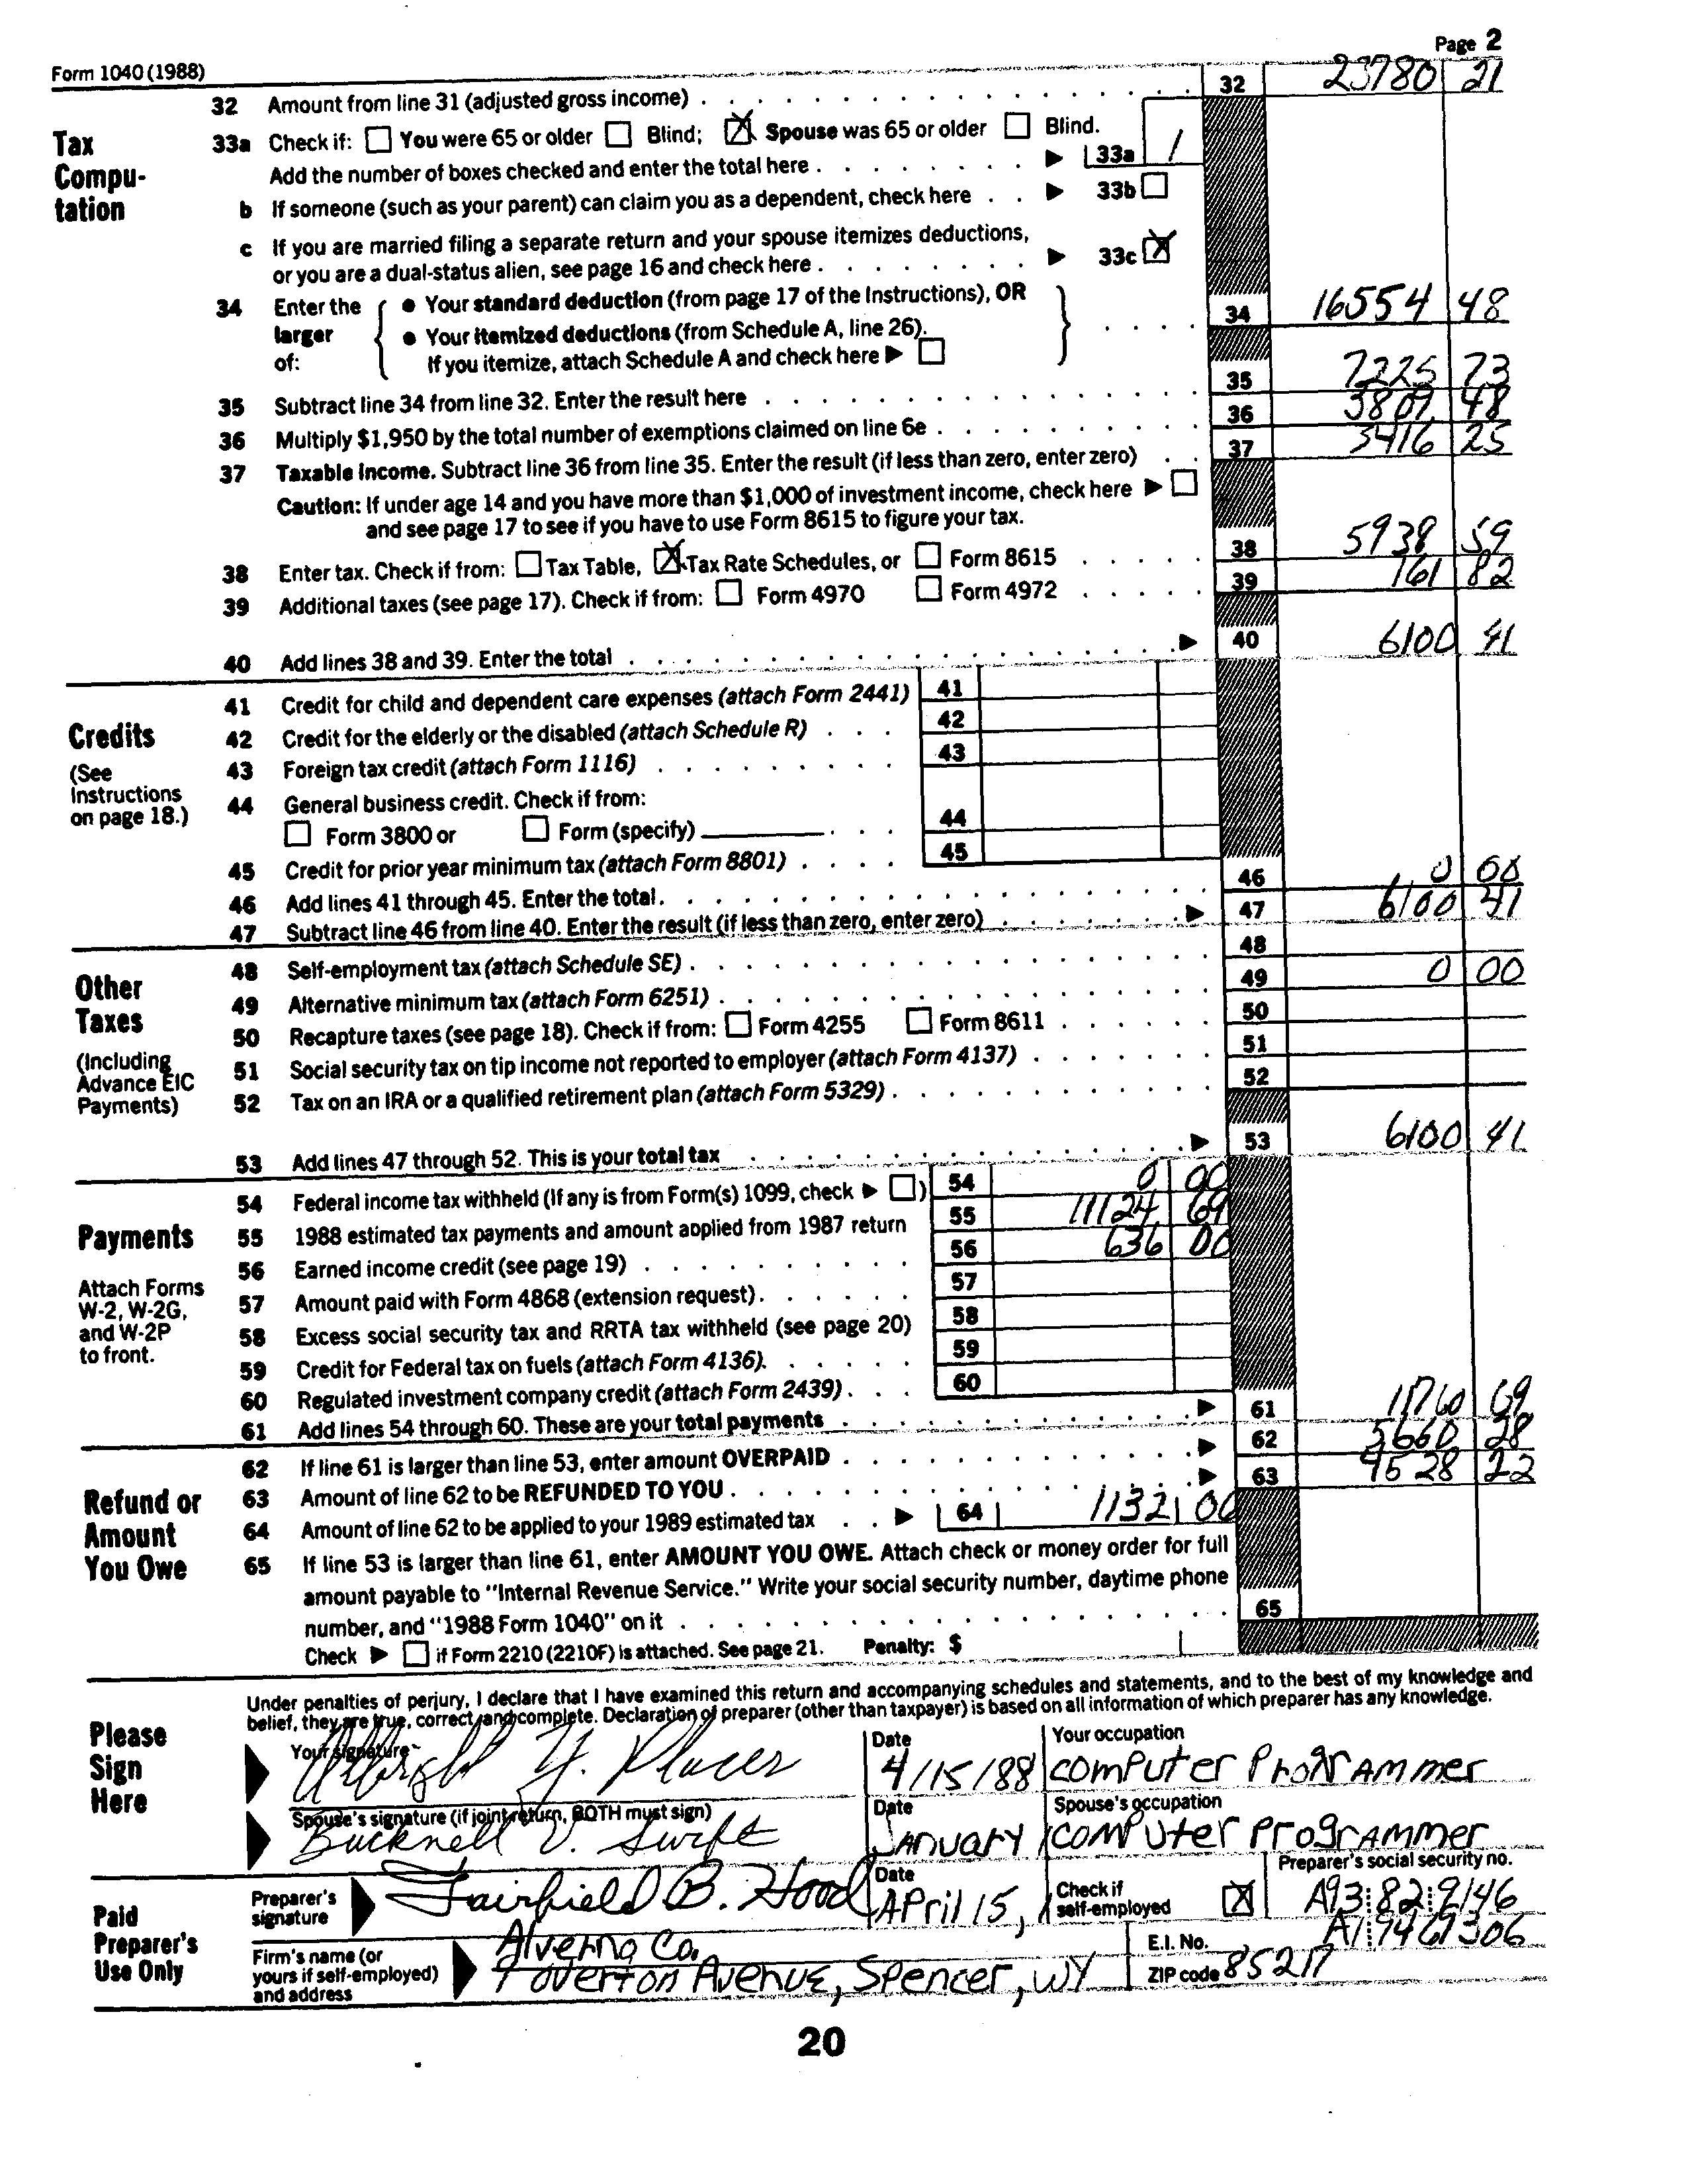 Form 1040 (1988)
Page 2
32 Amount from line 31 (adjusted gross income) 32 23780 21
Tax Compu-tation
33a Check if: You were 65 or older Blind; Spouse was 65 or older Blind.
Add the number of boxes checked and enter the total here 33a 1
b If someone (such as your parent) can claim you as a dependent, check here 33b
c If you are married filing a separate return and your spouse itemizes deductions,
or you are a dual-status alien, see page 16 and check here 33c
34 Enter the larger of: Your standard deduction (from page 17 of the Instructions), OR
Your itemized deductions (from Schedule A, line 26). 34 16554 48
If you itemize, attach Schedule A and check here
35 Subtract line 34 from line 32. Enter the result here 35 7225 73
36 Multiply $1,950 by the total number of exemptions claimed on line 6e 36 3809 48
37 Taxable income. Subtract line 36 from line 35. Enter the result (if less than zero, enter zero) 37 3416 25
Caution: If under age 14 and you have more than $1,000 of investment income, check here
and see page 17 to see if you have to use Form 8615 to figure your tax.
38 Enter tax. Check if from: Tax Table, Tax Rate Schedules, or Form 8615 38 5938 59
39 Additional taxes (see page 17). Check if from: Form 4970 Form 4972 39 161 82
40 Add lines 38 and 39. Enter the total 40 6100 41
Credits
(See Instructions on page 18.)
41 Credit for child and dependent care expenses (attach Form 2441) 41
42 Credit for the elderly or the disabled (attach Schedule R) 42
43 Foreign tax credit (attach Form 1116) 43
44 General business credit. Check if from:
Form 3800 or Form (specify) 44
45 Credit for prior year minimum tax (attach Form 8801) 45
46 Add lines 41 through 45. Enter the total 46 0 00
47 Subtract line 46 from line 40. Enter the result (if less than zero, enter zero) 47 6100 41
Other Taxes
(Including Advance EIC Payments)
48 Self-employment tax (attach Schedule SE) 48
49 Alternative minimum tax (attach Form 6251) 49 0 00
50 Recapture taxes (see page 18). Check if from: Form 4255 Form 8611 50
51 Social security tax on tip income not reported to employer (attach Form 4137) 51
52 Tax on an IRA or a qualified retirement plan (attach Form 5329) 52
53 Add lines 47 through 52. This is your total tax 53 6100 41
Payments
Attach Forms W-2, W-2G, and W-2P to front.
54 Federal income tax withheld (If any is from Form(s) 1099, check ) 54 0 00
55 1988 estimated tax payments and amount applied from 1987 return 55 11124 69
56 Earned income credit (see page 19) 56 636 00
57 Amount paid with Form 4868 (extension request) 57
58 Excess social security tax and RRTA tax withheld (see page 20) 58
59 Credit for Federal tax on fuels (attach Form 4136) 59
60 Regulated investment company credit (attach Form 2439) 60
61 Add lines 54 through 60. These are your total payments 61 11760 69
Refund or Amount You Owe
62 If line 61 is larger than line 53, enter amount OVERPAID 62 5660 28
63 Amount of line 62 to be REFUNDED TO YOU 63 4528 22
64 Amount of line 62 to be applied to your 1989 estimated tax 64 1132 06
65 If line 53 is larger than line 61, enter AMOUNT YOU OWE. Attach check or money order for full
amount payable to "Internal Revenue Service." Write your social security number, daytime phone
number, and "1988 Form 1040" on it 65
Check if Form 2210 (2210F) is attached. See page 21. Penalty: $
Please Sign Here
Under penalties of perjury, I declare that I have examined this return and accompanying schedules and statements, and to the best of my knowledge and
belief, they are true, correct, and complete. Declaration of preparer (other than taxpayer) is based on all information of which preparer has any knowledge.
Your signature Date Your occupation
Albright Y. Placer 4/15/88 computer Programmer
Spouse's signature (if joint return, BOTH must sign) Date Spouse's occupation
Bucknell V. Swift January computer Programmer
Paid Preparer's Use Only
Preparer's signature Fairfield B. Hood Date April 15, 1 Check if self-employed Preparer's social security no. A93:82:9146
Firm's name (or yours if self-employed) and address Alverna Co. E.I. No. A1:9469306
9 overton Avenue, Spencer, WY ZIP code 85217
20